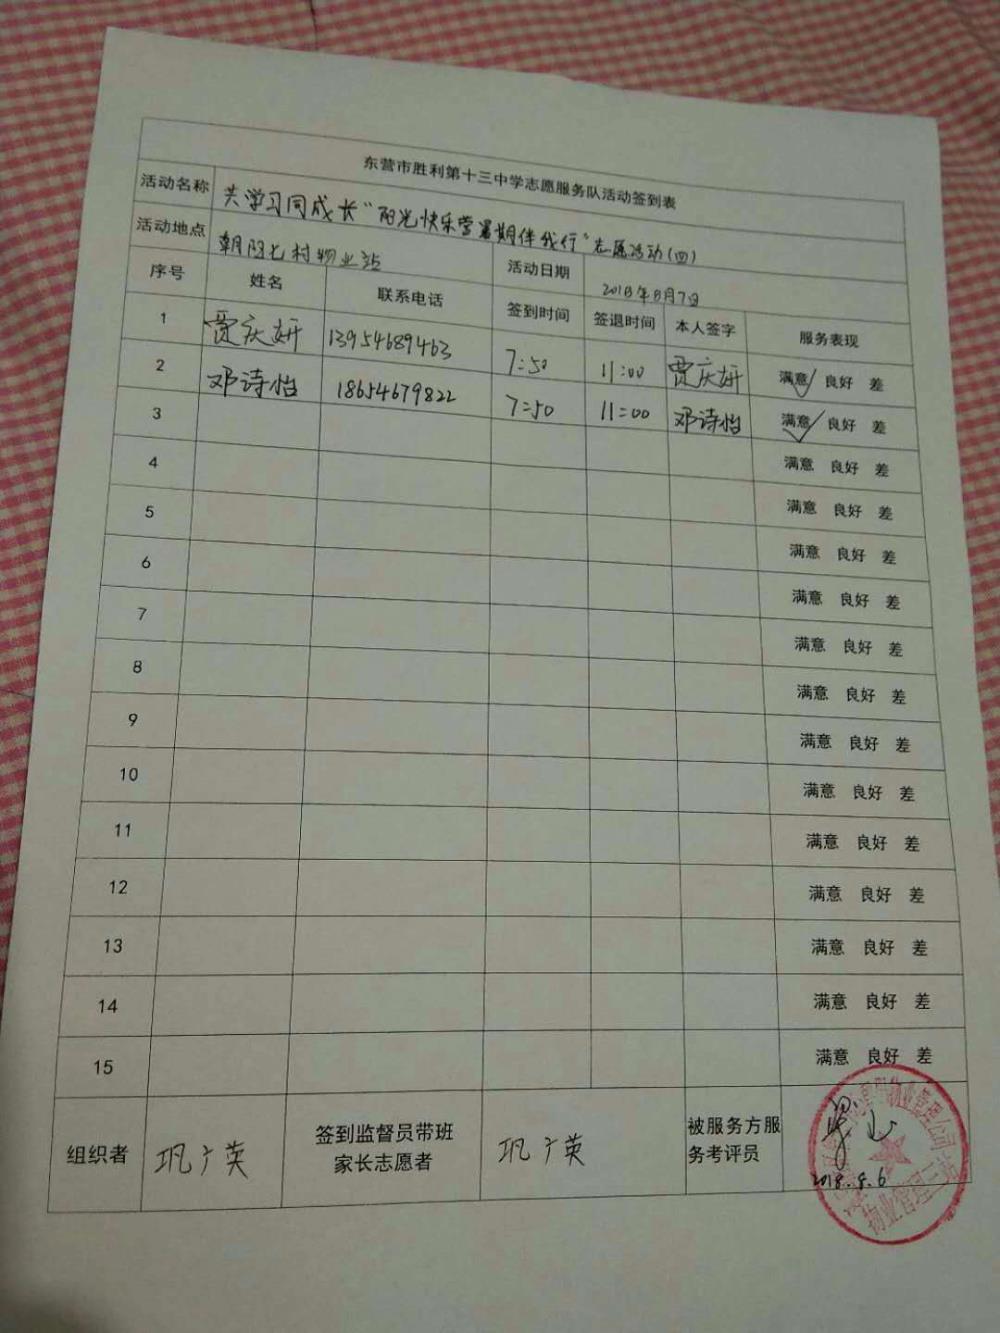 东营市胜利第十三中学志愿服务队活动签到表
活动名称 共学习同成长"阳光快乐营暑期伴我行"志愿活动(四)
活动地点 朝阳七村物业站 活动日期 2018年8月7日
序号 姓名 联系电话 签到时间 签退时间 本人签字 服务表现
1 贾庆妍 13954689463 7:50 11:00 贾庆妍 满意 良好 差
2 邓诗怡 18654679822 7:50 11:00 邓诗怡 满意 良好 差
3 满意 良好 差
4 满意 良好 差
5 满意 良好 差
6 满意 良好 差
7 满意 良好 差
8 满意 良好 差
9 满意 良好 差
10 满意 良好 差
11 满意 良好 差
12 满意 良好 差
13 满意 良好 差
14 满意 良好 差
15 满意 良好 差
组织者 巩广英 签到监督员带班家长志愿者 巩广英 被服务方服务考评员
2018.8.6
物业管理公司
物业管理三